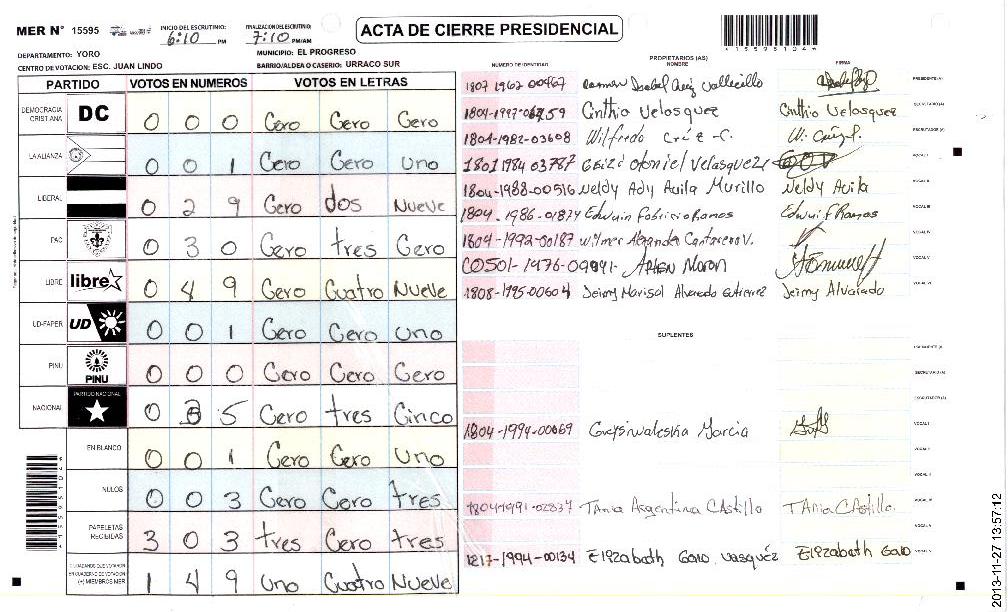 MER N° 15595
INICIO DEL ESCRUTINIO: 6:10 PM
FINALIZACION DEL ESCRUTINIO: 7:10 PM/AM
ACTA DE CIERRE PRESIDENCIAL
1559510 4
DEPARTAMENTO: YORO
MUNICIPIO: EL PROGRESO
CENTRO DE VOTACION: ESC. JUAN LINDO
BARRIO/ALDEA O CASERIO: URRACO SUR
PARTIDO VOTOS EN NUMEROS VOTOS EN LETRAS
DEMOCRACIA CRISTIANA DC 0 0 0 Cero Cero Cero
LA ALIANZA 0 0 1 Cero Cero uno
LIBERAL 0 2 9 Cero dos Nueve
PAC 0 3 0 Cero tres Cero
LIBRE libre 0 4 9 Cero Cuatro Nueve
UD-FAPER UD 0 0 1 Cero Cero uno
PINU PINU 0 0 0 Cero Cero Cero
NACIONAL PARTIDO NACIONAL 0 3 5 Cero tres Cinco
EN BLANCO 0 0 1 Cero Cero uno
NULOS 0 0 3 Cero Cero tres
PAPELETAS RECIBIDAS 3 0 3 tres Cero tres
CIUDADANOS QUE VOTARON EN CUADERNO DE VOTACION (+) MIEMBROS MER 1 4 9 uno Cuatro Nueve
PROPIETARIOS (AS)
NUMERO DE IDENTIDAD NOMBRE FIRMA
1807 1962 00467 Ramon Isabel Ruiz Vallecillo PRESIDENTE (A)
1804-1997-06759 Cinthia Velasquez Cinthia Velasquez SECRETARIO (A)
1804-1982-03608 Wilfredo ESCRUTADOR (A)
1801 1984 03787 Otoniel Velasquez VOCAL I
1804-1988-00516 Neldy Ady Avila Murillo Neldy Avila VOCAL II
1804-1986-01874 Edwuin Fabricio Ramos Edwuin F Ramos VOCAL III
1804-1992-00187 Wilmer Alexander Cantarero V. VOCAL IV
0501-1976-09991 VOCAL V
1808-1995-00604 Jeimy Marisol Alvarado Gutierrez Jeimy Alvarado VOCAL VI
SUPLENTES
PRESIDENTE (A)
SECRETARIO (A)
ESCRUTADOR (A)
1804-1994-00069 Garcia VOCAL I
VOCAL II
1804-1991-02837 Tania Argentina Castillo Tania Castillo VOCAL III
VOCAL IV
1217-1994-00134 Elizabath Galo Vasquéz Elizabath Galo VOCAL V
2013-11-27 13:57:12